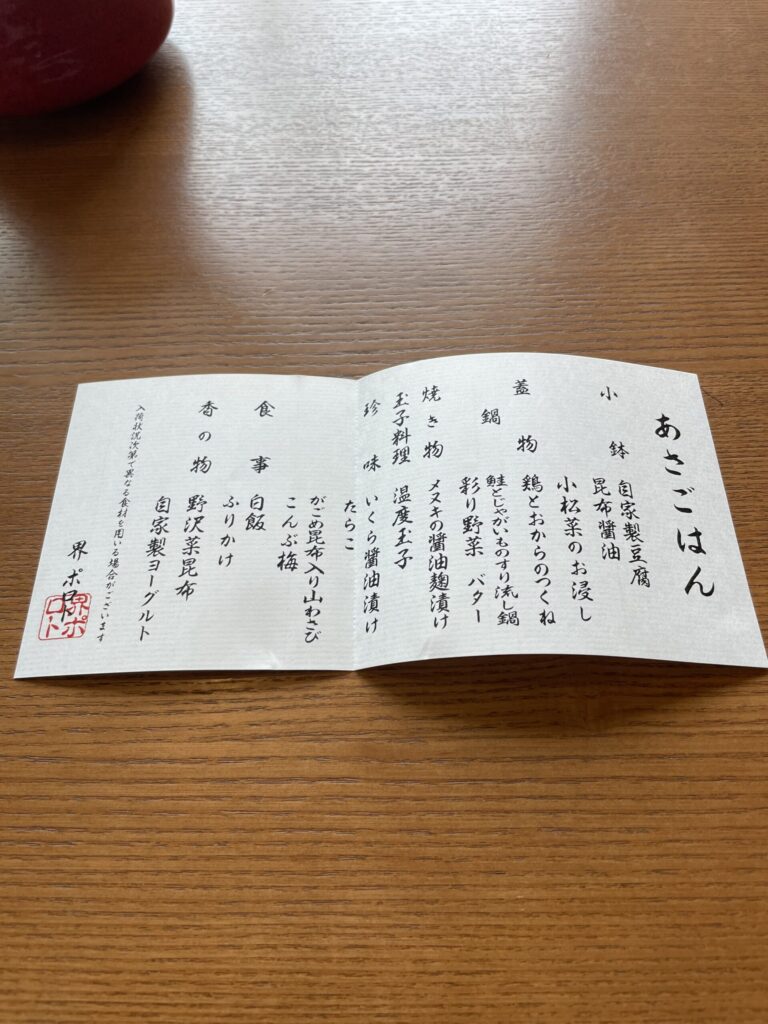 あさごはん
小鉢 自家製豆腐
昆布醤油
小松菜のお浸し
蓋物 鶏とおからのつくね
鍋 鮭とじゃがいものすり流し鍋
彩り野菜 バター
焼き物 メヌキの醤油麹漬け
玉子料理 温度玉子
珍味 いくら醤油漬け
たらこ
がごめ昆布入り山わさび
こんぶ梅
食事 白飯
ふりかけ
香の物 野沢菜昆布
自家製ヨーグルト
入荷状況次第で異なる食材を用いる場合がございます
界 ポロト
界ポロト